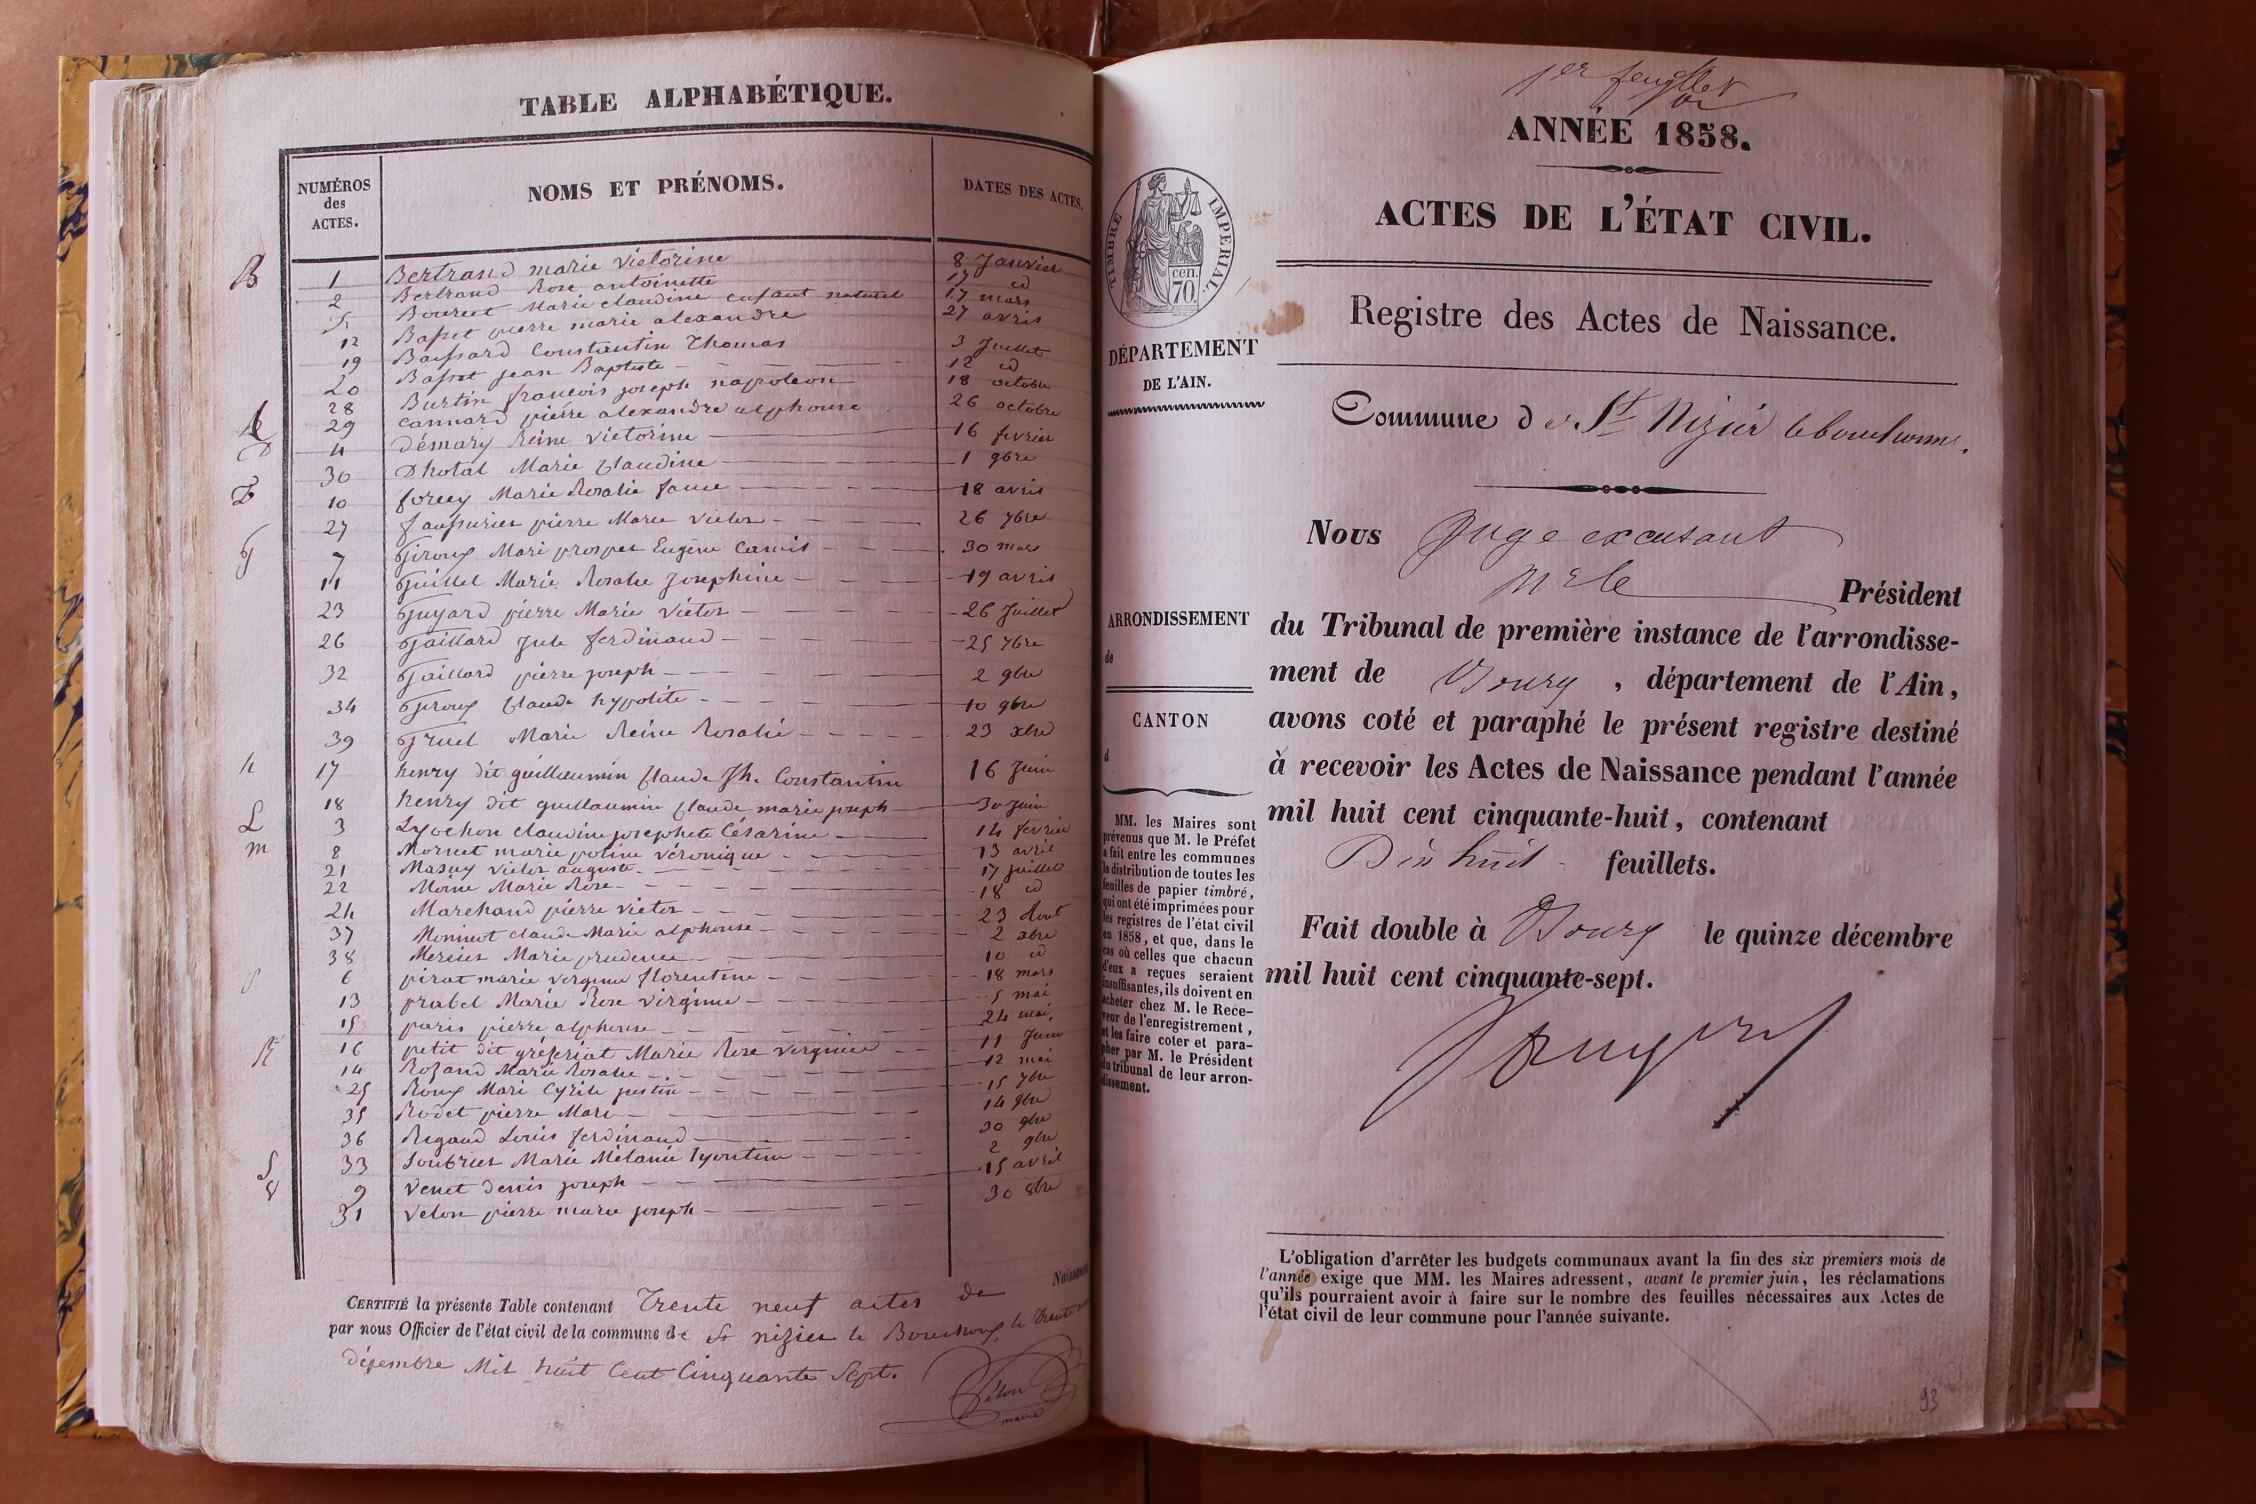 TABLE ALPHABÉTIQUE.
NUMÉROS des ACTES. NOMS ET PRÉNOMS. DATES DES ACTES.
B 1 Bertrand marie victorine 8 Janvier
2 Bertrand Rose antoinette 17 id
5 Bourcet Marie claudine enfant naturel 17 mars
12 Basset pierre marie alexandre 27 avril
19 Constantin Thomas 3 Juillet
20 Basset jean Baptiste 12 id
28 Burtin françois joseph napoleon 18 octobre
29 cannard pierre alexandre alphonse 26 octobre
D 4 démary Reine victorine 16 fevrier
30 Dhotal Marie Claudine 1 9bre
F 10 Marie Rosalie 18 avril
27 faussurier pierre Marie victor 26 7bre
G 7 Giroux Mari prosper Eugène Camil 30 mars
11 Guillet Marie Rosalie Josephine 19 avril
23 Guyard pierre Marie victor 26 Juillet
26 Gaillard Jule ferdinand 25 7bre
32 Gaillard pierre joseph 2 9bre
34 Giroux Claude hypolite 10 9bre
39 Gruel Marie Reine Rosalie 23 xbre
h 17 henry dit guillaumin Claude Jh. Constantin 16 Juin
18 henry dit guillaumin Claude marie joseph 30 Juin
L 3 Lyochon claudine josephete Césarine 14 fevrier
m 8 Mornet marie poline véronique 13 avril
21 Masuy victor auguste 17 juillet
22 Moine Marie Rose 18 id
24 Marchand pierre victor 23 Aout
37 Moninot claude Marie alphonse 2 xbre
38 Mercier Marie prudence 10 id
p 6 pirat marie verginie florentine 18 mars
13 prabel Marie Rose virginie 5 mai
15 paris pierre alphonse 24 mai
16 petit dit Marie Rose verginie 11 Juin
R 14 Rozand Marie Rosalie 12 mai
25 Roux Mari Cyrile justin 15 7bre
35 Rodet pierre Mari 14 9bre
36 Rigaud Louis ferdinand 30 9bre
S 33 Soubrier Marie Mélanie lyontine 2 9bre
V 9 Venet denis joseph 15 avril
31 Velon pierre marie joseph 30 8bre
Naissance
CERTIFIÉ la présente Table contenant Trente neuf actes de
par nous Officier de l'état civil de la commune de St nizier le Bouchoux, le trente
décembre Mil huit Cent Cinquante Sept.
Velon
maire
1er feuillet
ANNÉE 1858.
ACTES DE L'ÉTAT CIVIL.
TIMBRE IMPERIAL.
cen. 70.
Registre des Actes de Naissance.
DÉPARTEMENT
DE L'AIN.
Commune d e St Nizier le bouchoux.
Nous Juge excusant
Mr le Président
ARRONDISSEMENT
de
CANTON
d
du Tribunal de première instance de l'arrondisse-
ment de Bourg, département de l'Ain,
avons coté et paraphé le présent registre destiné
à recevoir les Actes de Naissance pendant l'année
mil huit cent cinquante-huit, contenant
Dix huit feuillets.
MM. les Maires sont
prévenus que M. le Préfet
a fait entre les communes
la distribution de toutes les
feuilles de papier timbré,
qui ont été imprimées pour
les registres de l'état civil
en 1858, et que, dans le
cas où celles que chacun
d'eux a reçues seraient
insuffisantes, ils doivent en
acheter chez M. le Rece-
veur de l'enregistrement,
et les faire coter et para-
pher par M. le Président
du tribunal de leur arron-
dissement.
Fait double à Bourg le quinze décembre
mil huit cent cinquante-sept.
L'obligation d'arrêter les budgets communaux avant la fin des six premiers mois de
l'année exige que MM. les Maires adressent, avant le premier juin, les réclamations
qu'ils pourraient avoir à faire sur le nombre des feuilles nécessaires aux Actes de
l'état civil de leur commune pour l'année suivante.
93